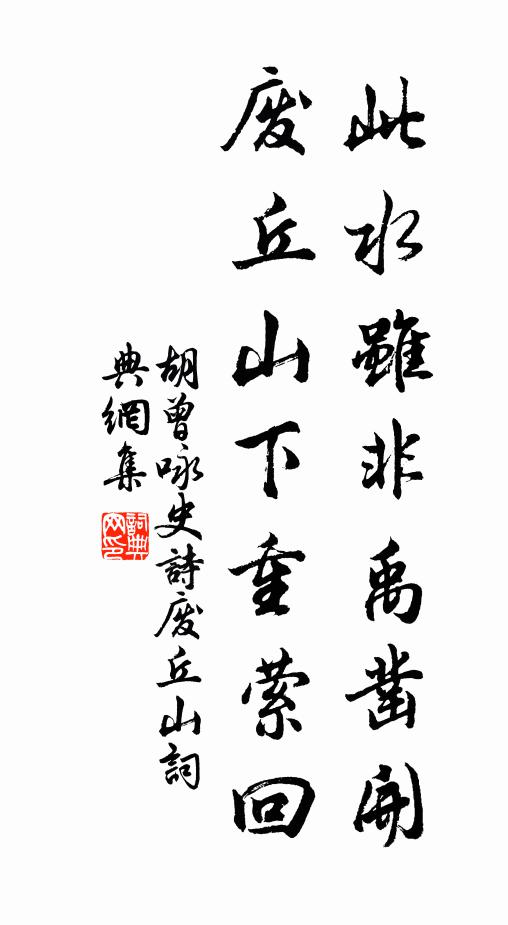 此水雖非禹鑿開
廢丘山下重縈回
胡曾咏史詩廢丘山詞
典網集
詞典网印